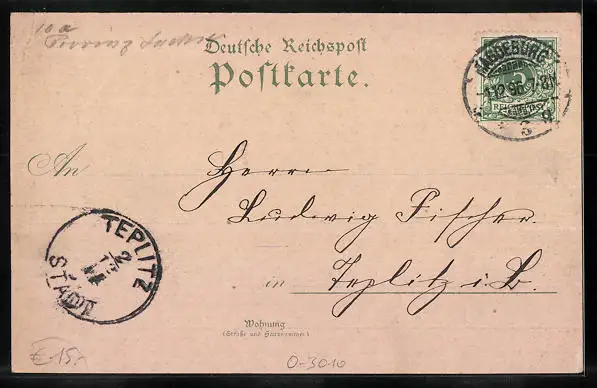 10 a
Deutsche Reichspost
Postkarte.
MAGDEBURG
1.12.96. 7-8N
* 3 g.
5
REICHSPOST
An
Herrn
Ludwig Fischer.
in Teplitz i. B.
TEPLITZ
2
12
STADT
Wohnung
(Straße und Hausnummer)
£ 15.-
O-3010